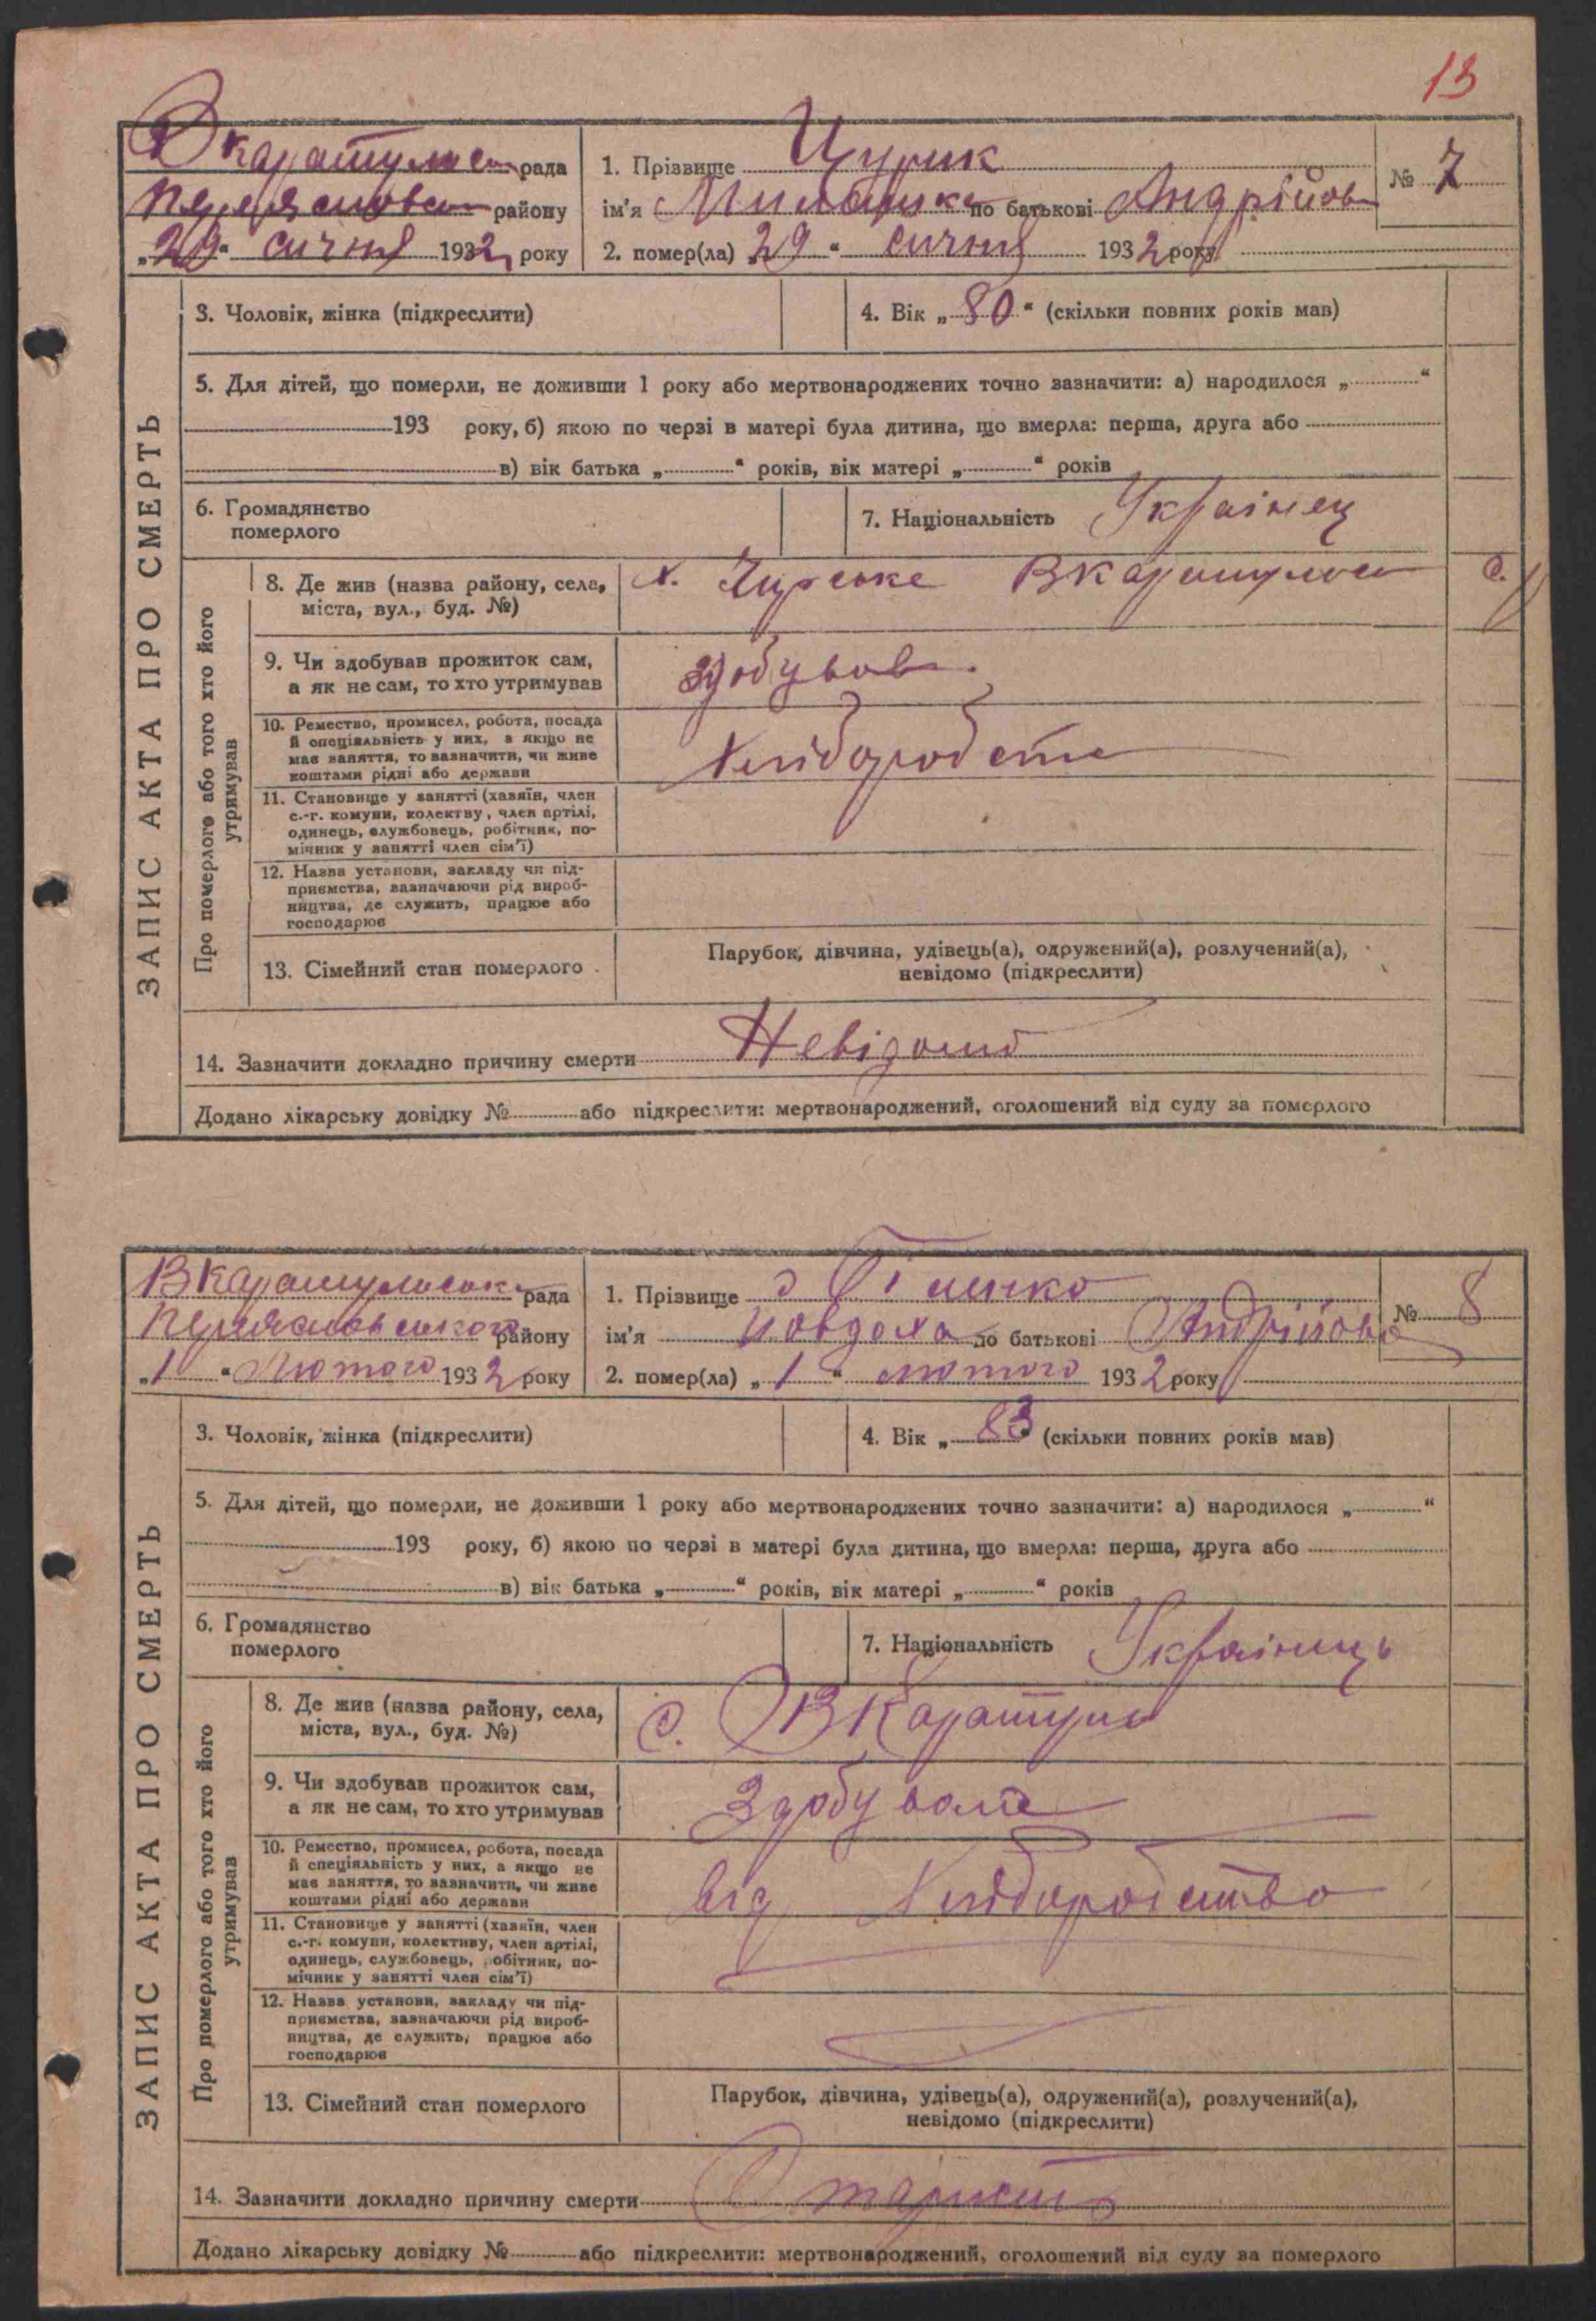 13
Вкаратульс рада
Переяславськ району
„29“ січня 1932 року
1. Прізвище Цурик
ім’я по батькові Андрійов
2. помер(ла) „29“ січня 1932 року
№ 7
ЗАПИС АКТА ПРО СМЕРТЬ
3. Чоловік, жінка (підкреслити)
4. Вік „80“ (скільки повних років мав)
5. Для дітей, що померли, не доживши 1 року або мертвонароджених точно зазначити: а) народилося „ “
193 року, б) якою по черзі в матері була дитина, що вмерла: перша, друга або
в) вік батька „ “ років, вік матері „ “ років
6. Громадянство
померлого
7. Національність Українец
Про померлого або того хто його
утримував
8. Де жив (назва району, села,
міста, вул., буд. №)
х. Чирське Вкаратульс
с.
9. Чи здобував прожиток сам,
а як не сам, то хто утримував
здобував
10. Ремество, промисел, робота, посада
й специіяльність у них, а якщо не
має заняття, то зазначити, чи живе
коштами рідні або держави
Хліборобств
11. Становище у занятті (хазяїн, член
с.-г. комуни, колективу, член артілі,
одинець, службовець, робітник, по-
мічник у занятті член сім’ї)
12. Назва установи, закладу чи під-
приємства, зазначаючи рід вироб-
ництва, де служить, працює або
господарює
13. Сімейний стан померлого
Парубок, дівчина, удівець(а), одружений(а), розлучений(а),
невідомо (підкреслити)
14. Зазначити докладно причину смерти Невідомо
Додано лікарську довідку № або підкреслити: мертвонароджений, оголошений від суду за померлого
Вкаратульськ рада
Переяславського району
„1“ Лютого 1932 року
1. Прізвище
ім’я И овдоха по батькові Андрійовна
2. помер(ла) „1“ лютого 1932 року
№ 8
ЗАПИС АКТА ПРО СМЕРТЬ
3. Чоловік, жінка (підкреслити)
4. Вік „83“ (скільки повних років мав)
5. Для дітей, що померли, не доживши 1 року або мертвонароджених точно зазначити: а) народилося „ “
193 року, б) якою по черзі в матері була дитина, що вмерла: перша, друга або
в) вік батька „ “ років, вік матері „ “ років
6. Громадянство
померлого
7. Національність Українець
Про померлого або того хто його
утримував
8. Де жив (назва району, села,
міста, вул., буд. №)
с. ВКаратуль
9. Чи здобував прожиток сам,
а як не сам, то хто утримував
Здобувала
10. Ремество, промисел, робота, посада
й специіяльність у них, а якщо не
має заняття, то зазначити, чи живе
коштами рідні або держави
від Хліборобство
11. Становище у занятті (хазяїн, член
с.-г. комуни, колективу, член артілі,
одинець, службовець, робітник, по-
мічник у занятті член сім’ї)
12. Назва установи, закладу чи під-
приємства, зазначаючи рід вироб-
ництва, де служить, працює або
господарює
13. Сімейний стан померлого
Парубок, дівчина, удівець(а), одружений(а), розлучений(а),
невідомо (підкреслити)
14. Зазначити докладно причину смерти Старисть
Додано лікарську довідку № або підкреслити: мертвонароджений, оголошений від суду за померлого